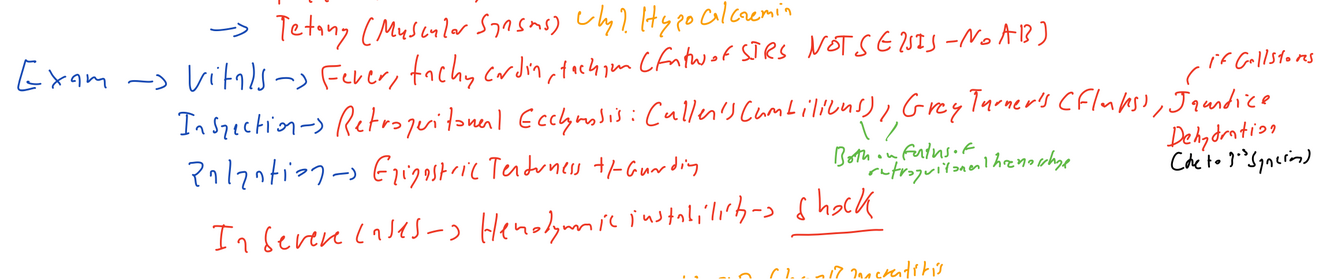 → Tetany (Muscular Spasms) Why? Hypocalcaemia
Exam → Vitals → Fever, tachycardia, tachypnea (Features of SIRS NOT SEPSIS - No AB)
if Gallstones
Inspection → Retroperitoneal Ecchymosis: Cullen's (umbilicus), Grey Turner's (Flanks), Jaundice
Both are features of
retroperitoneal haemorrhage
Dehydration
(due to 3rd spacing)
Palpation → Epigastric Tenderness +/- Guarding
In severe cases → Hemodynamic instability → shock
pancreatitis